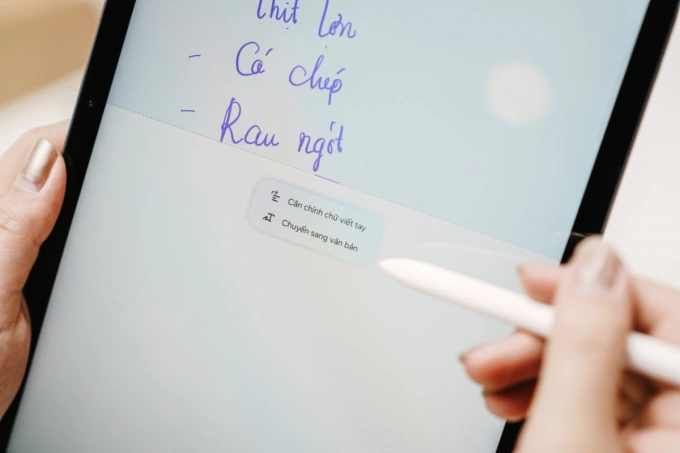 Thịt lợn
- Cá chép
- Rau ngót
Căn chỉnh chữ viết tay
Chuyển sang văn bản